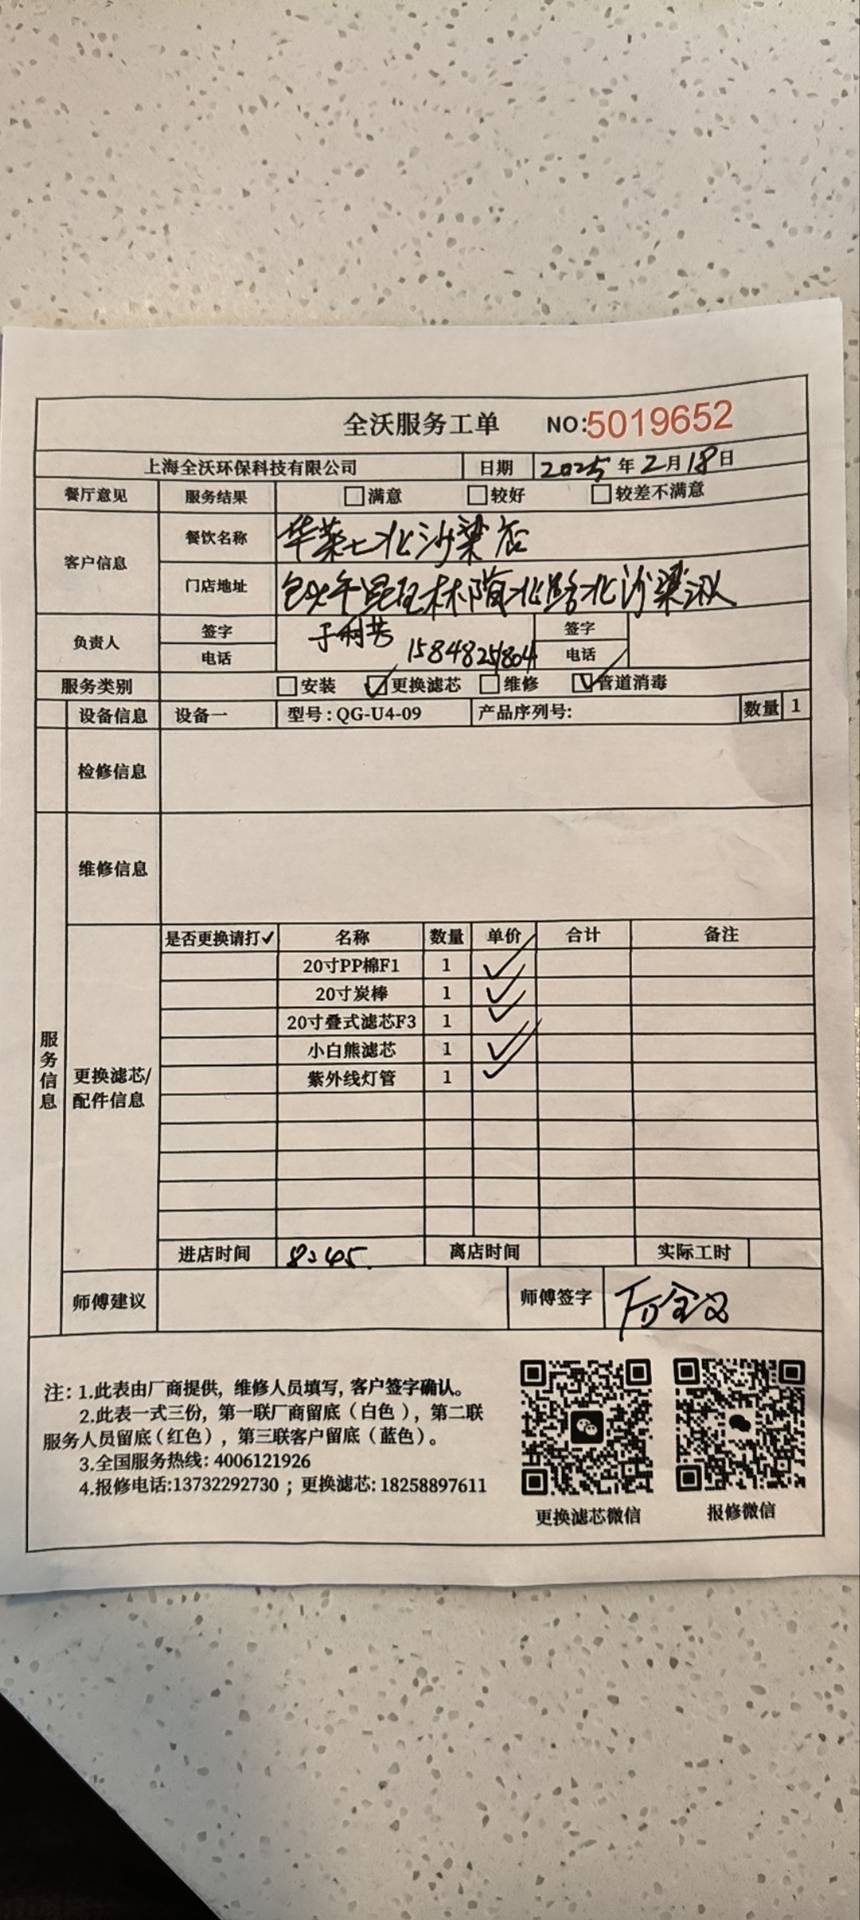 全沃服务工单 NO:5019652
上海全沃环保科技有限公司 日期 2025年2月18日
餐厅意见 服务结果 □满意 □较好 □较差不满意
客户信息 餐饮名称 华莱士北沙梁店
门店地址 包头市昆区林荫北路北沙梁
负责人 签字 于利芳 签字
电话 15848251804 电话
服务类别 □安装 ☑更换滤芯 □维修 ☑管道消毒
设备信息 设备一 型号:QG-U4-09 产品序列号: 数量 1
检修信息
维修信息
服务信息
更换滤芯/配件信息
是否更换请打✓ 名称 数量 单价 合计 备注
20寸PP棉F1 1 ✓
20寸炭棒 1 ✓
20寸叠式滤芯F3 1 ✓
小白熊滤芯 1 ✓
紫外线灯管 1 ✓
进店时间 8:45 离店时间 实际工时
师傅建议 师傅签字
注: 1.此表由厂商提供, 维修人员填写, 客户签字确认。
2.此表一式三份, 第一联厂商留底(白色), 第二联
服务人员留底(红色), 第三联客户留底(蓝色)。
3.全国服务热线: 4006121926
4.报修电话:13732292730; 更换滤芯: 18258897611
更换滤芯微信 报修微信